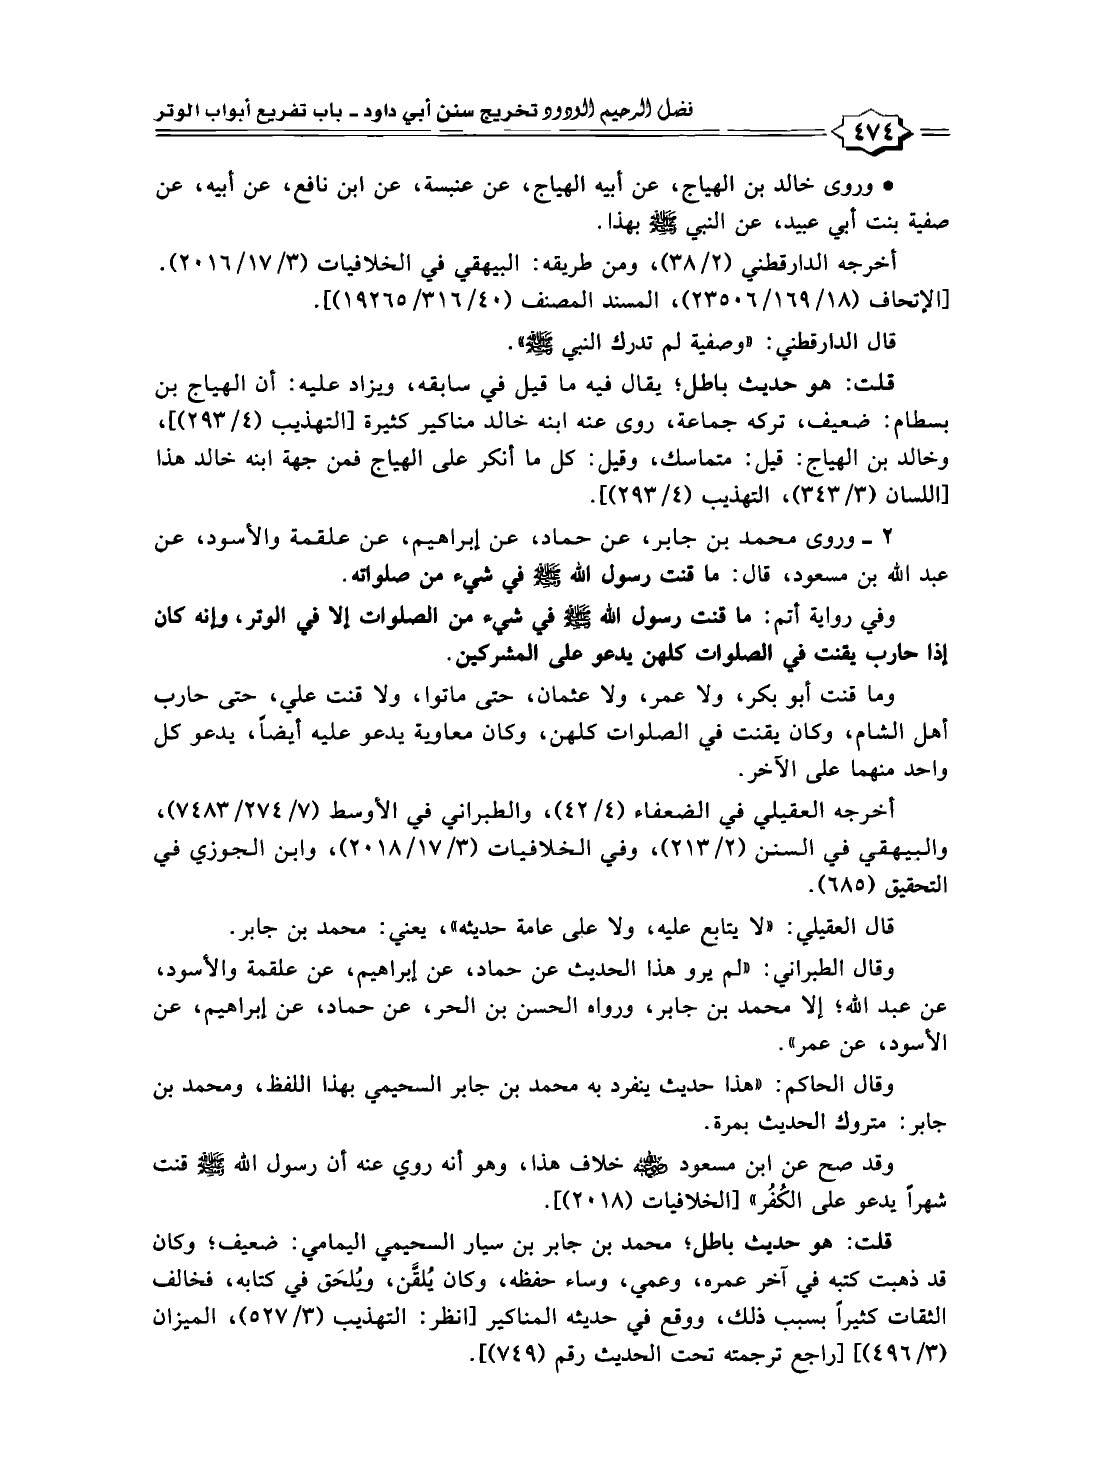 فضل الرحيم الودود تخريج سنن أبي داود - باب تفريع أبواب الوتر
٤٧٤
• وروى خالد بن الهياج، عن أبيه الهياج، عن عنبسة، عن ابن نافع، عن أبيه، عن
صفية بنت أبي عبيد، عن النبي ﷺ بهذا.
أخرجه الدارقطني (٣٨/٢)، ومن طريقه: البيهقي في الخلافيات (٢٠١٦/١٧/٣).
[الإتحاف (٢٣٥٠٦/١٦٩/١٨)، المسند المصنف (١٩٢٦٥/٣١٦/٤٠)].
قال الدارقطني: «وصفية لم تدرك النبي ﷺ».
قلت: هو حديث باطل؛ يقال فيه ما قيل في سابقه، ويزاد عليه: أن الهياج بن
بسطام: ضعيف، تركه جماعة، روى عنه ابنه خالد مناكير كثيرة [التهذيب (٢٩٣/٤)]،
وخالد بن الهياج: قيل: متماسك، وقيل: كل ما أنكر على الهياج فمن جهة ابنه خالد هذا
[اللسان (٣٤٣/٣)، التهذيب (٢٩٣/٤)].
٢ - وروى محمد بن جابر، عن حماد، عن إبراهيم، عن علقمة والأسود، عن
عبد الله بن مسعود، قال: ما قنت رسول الله ﷺ في شيء من صلواته.
وفي رواية أتم: ما قنت رسول الله ﷺ في شيء من الصلوات إلا في الوتر، وإنه كان
إذا حارب يقنت في الصلوات كلهن يدعو على المشركين.
وما قنت أبو بكر، ولا عمر، ولا عثمان، حتى ماتوا، ولا قنت علي، حتى حارب
أهل الشام، وكان يقنت في الصلوات كلهن، وكان معاوية يدعو عليه أيضاً، يدعو كل
واحد منهما على الآخر.
أخرجه العقيلي في الضعفاء (٤٢/٤)، والطبراني في الأوسط (٧٤٨٣/٢٧٤/٧)،
والبيهقي في السنن (٢١٣/٢)، وفي الخلافيات (٢٠١٨/١٧/٣)، وابن الجوزي في
التحقيق (٦٨٥).
قال العقيلي: «لا يتابع عليه، ولا على عامة حديثه»، يعني: محمد بن جابر.
وقال الطبراني: «لم يرو هذا الحديث عن حماد، عن إبراهيم، عن علقمة والأسود،
عن عبد الله؛ إلا محمد بن جابر، ورواه الحسن بن الحر، عن حماد، عن إبراهيم، عن
الأسود، عن عمر».
وقال الحاكم: «هذا حديث ينفرد به محمد بن جابر السحيمي بهذا اللفظ، ومحمد بن
جابر: متروك الحديث بمرة.
وقد صح عن ابن مسعود رضي الله عنه خلاف هذا، وهو أنه روي عنه أن رسول الله ﷺ قنت
شهراً يدعو على الكُفُر» [الخلافيات (٢٠١٨)].
قلت: هو حديث باطل؛ محمد بن جابر بن سيار السحيمي اليمامي: ضعيف؛ وكان
قد ذهبت كتبه في آخر عمره، وعمي، وساء حفظه، وكان يُلقَّن، ويُلحَق في كتابه، فخالف
الثقات كثيراً بسبب ذلك، ووقع في حديثه المناكير [انظر: التهذيب (٥٢٧/٣)، الميزان
(٤٩٦/٣)] [راجع ترجمته تحت الحديث رقم (٧٤٩)].